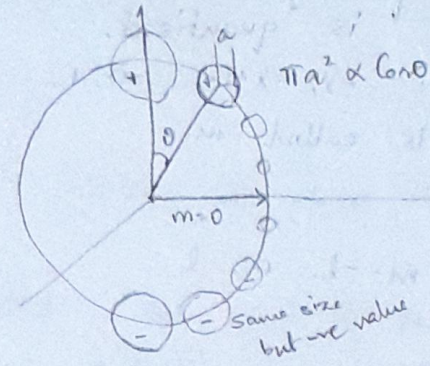 a
+
+
πa² ∝ Cosθ
θ
m=0
-
-
-
same size
but -ve value